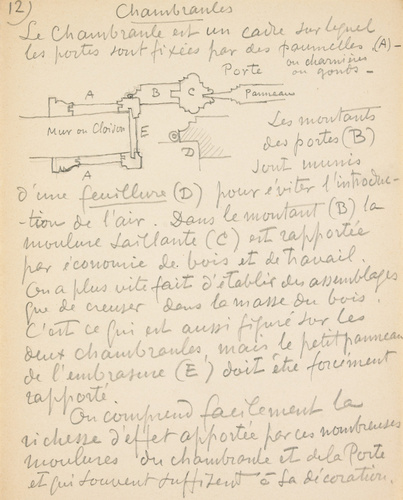 12) Chambranles
Le Chambranle est un cadre sur lequel
les portes sont fixées par des paumelles (A) -
ou charnières
ou gonds -
Porte
A
B
C
Panneau
Mur ou Cloison
E
D
A
Les montants
des portes (B)
sont munis
d'une feuillure (D) pour éviter l'introduc-
-tion de l'air. Dans le montant (B) la
moulure saillante (C) est rapportée
par économie de bois et de travail.
On a plus vite fait d'établir des assemblages
que de creuser dans la masse du bois.
C'est ce qui est aussi figuré sur les
deux chambranles, mais le petit panneau
de l'embrasure (E) doit être forcément
rapporté.
On comprend facilement la
richesse d'effet apportée par ces nombreuses
moulures du chambranle et de la Porte
et qui souvent suffisent à sa décoration.